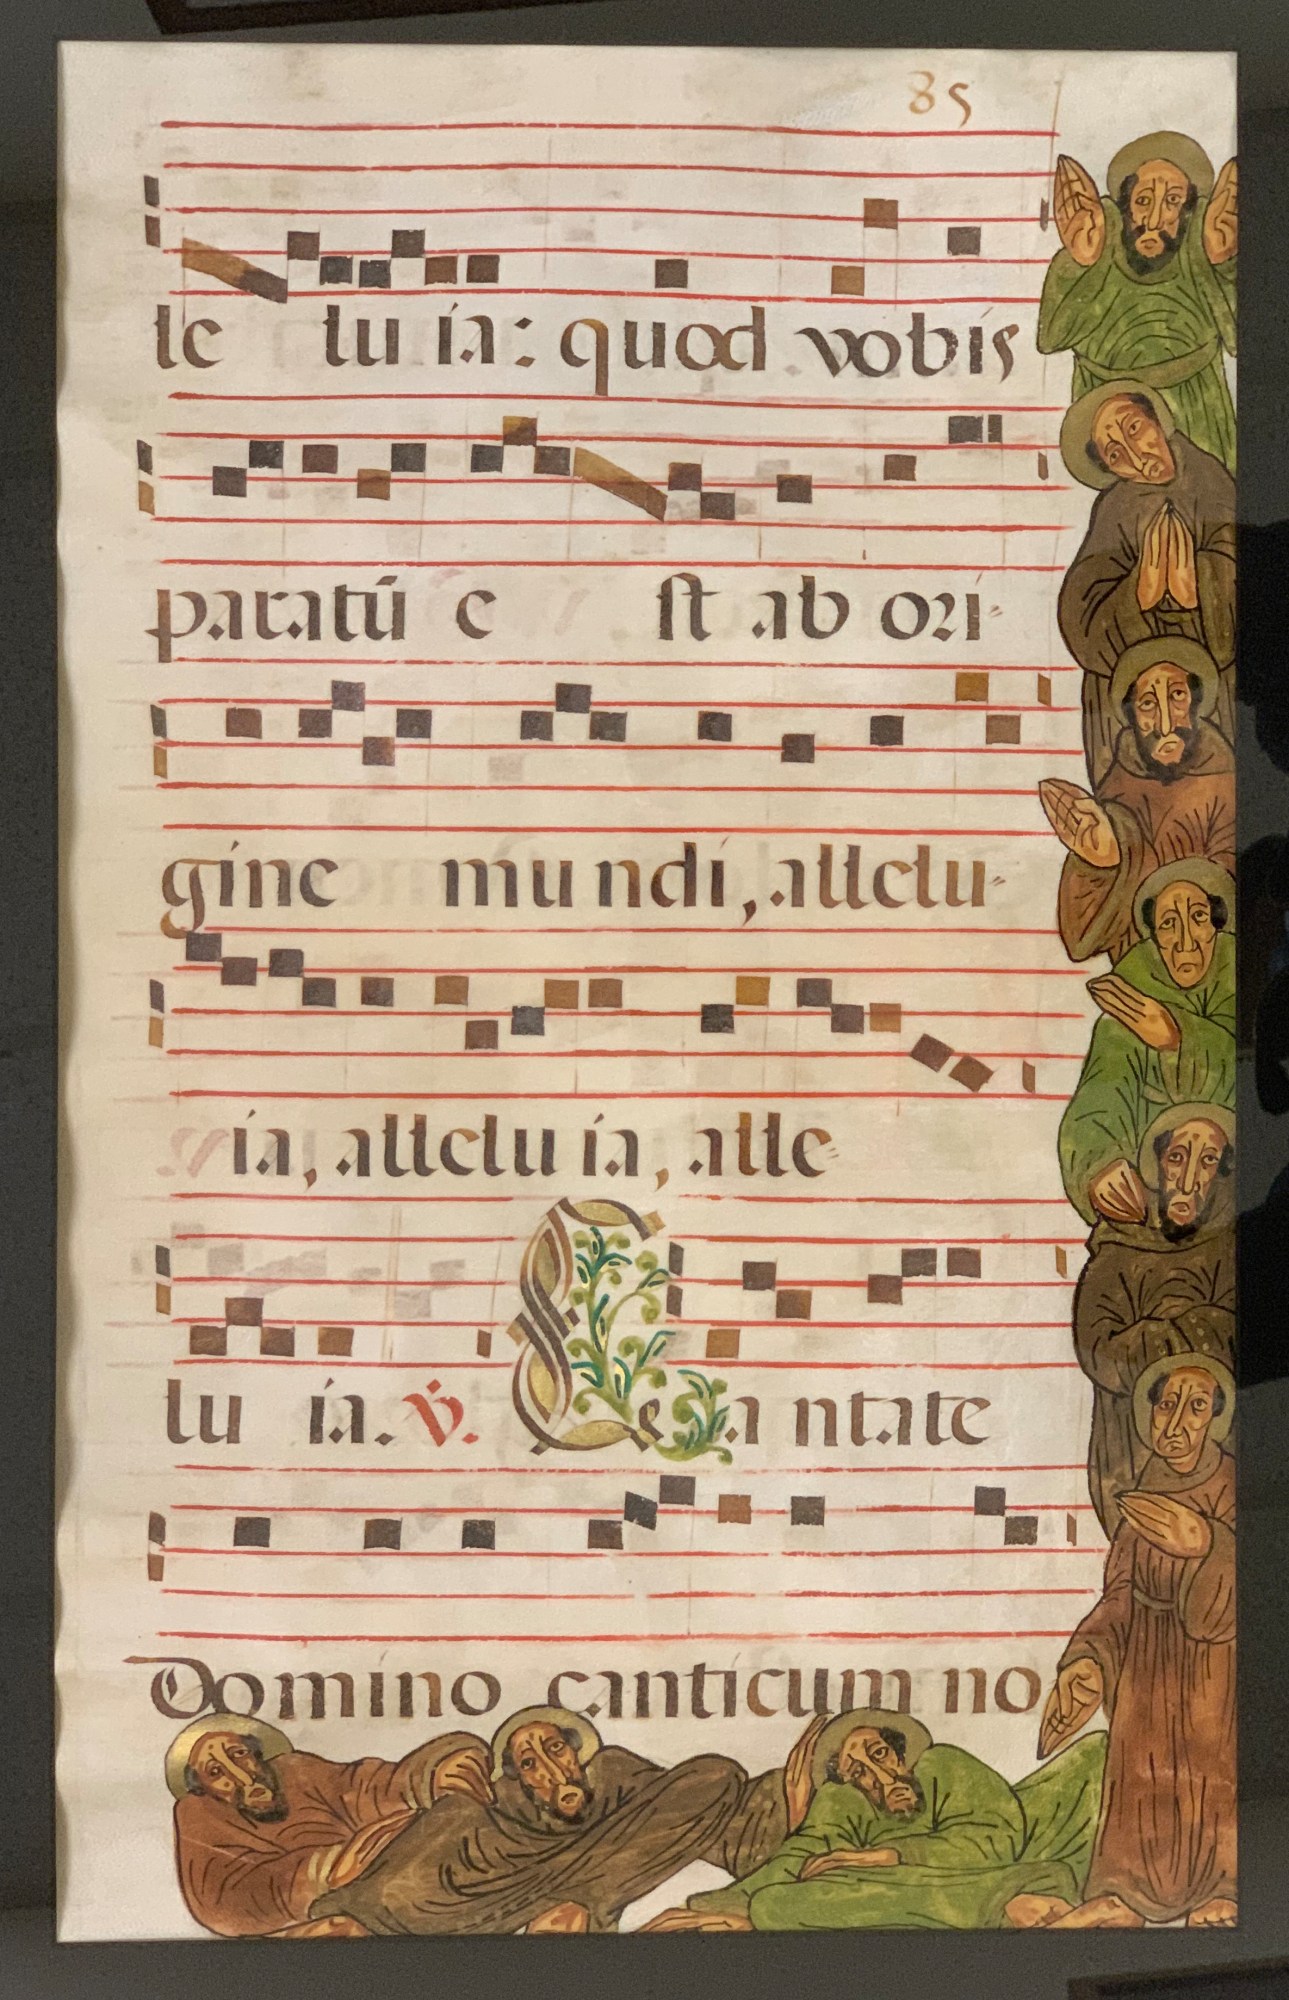 85
le lu ia: quod vobis
paratū e st ab ori-
gine mu ndi, allelu-
ia, allelu ia, alle-
lu ia. ℣. Ca ntate
Domino canticum no